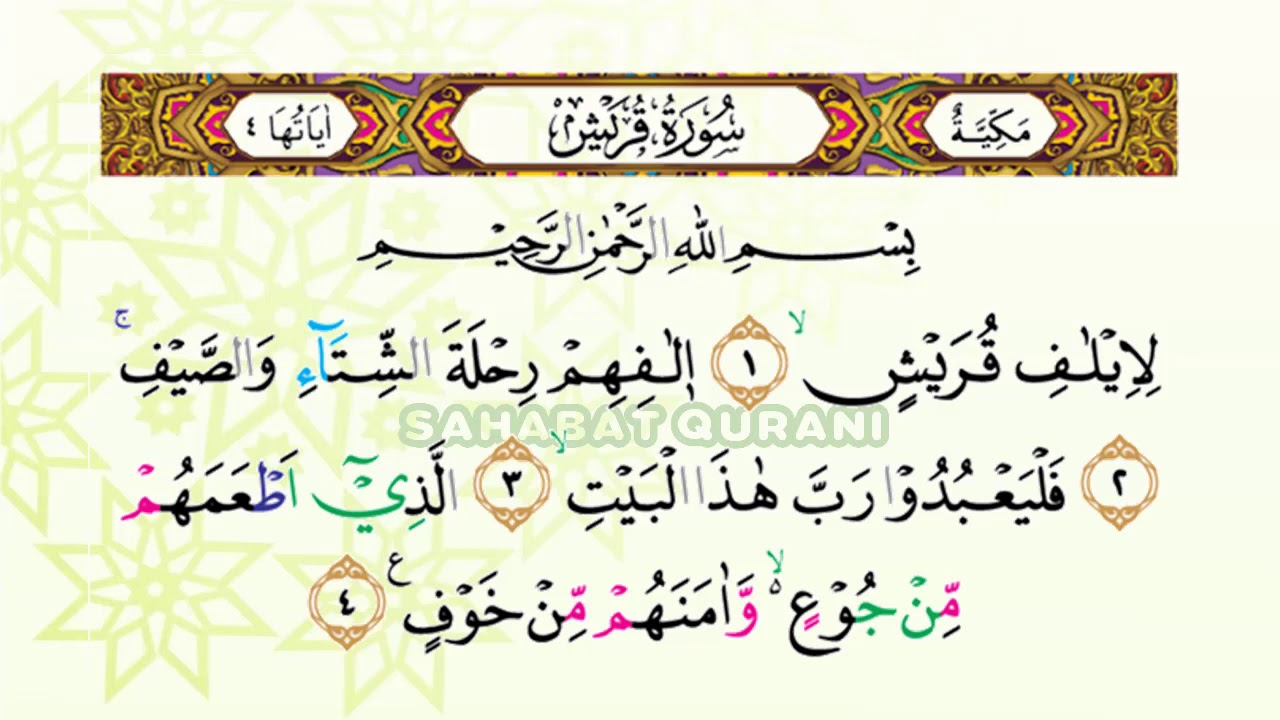 مَكِيَّةٌ سُورَةُ قُرَيْشٍ اٰيَاتُهَا ٤
بِسْمِ اللّٰهِ الرَّحْمٰنِ الرَّحِيْمِ
لِاِيْلٰفِ قُرَيْشٍۙ ١ اٖلٰفِهِمْ رِحْلَةَ الشِّتَاۤءِ وَالصَّيْفِۚ
SAHABAT QURANI
٢ فَلْيَعْبُدُوْا رَبَّ هٰذَا الْبَيْتِۙ ٣ الَّذِيْٓ اَطْعَمَهُمْ
مِّنْ جُوْعٍ ەۙ وَّاٰمَنَهُمْ مِّنْ خَوْفٍ ࣖ ٤